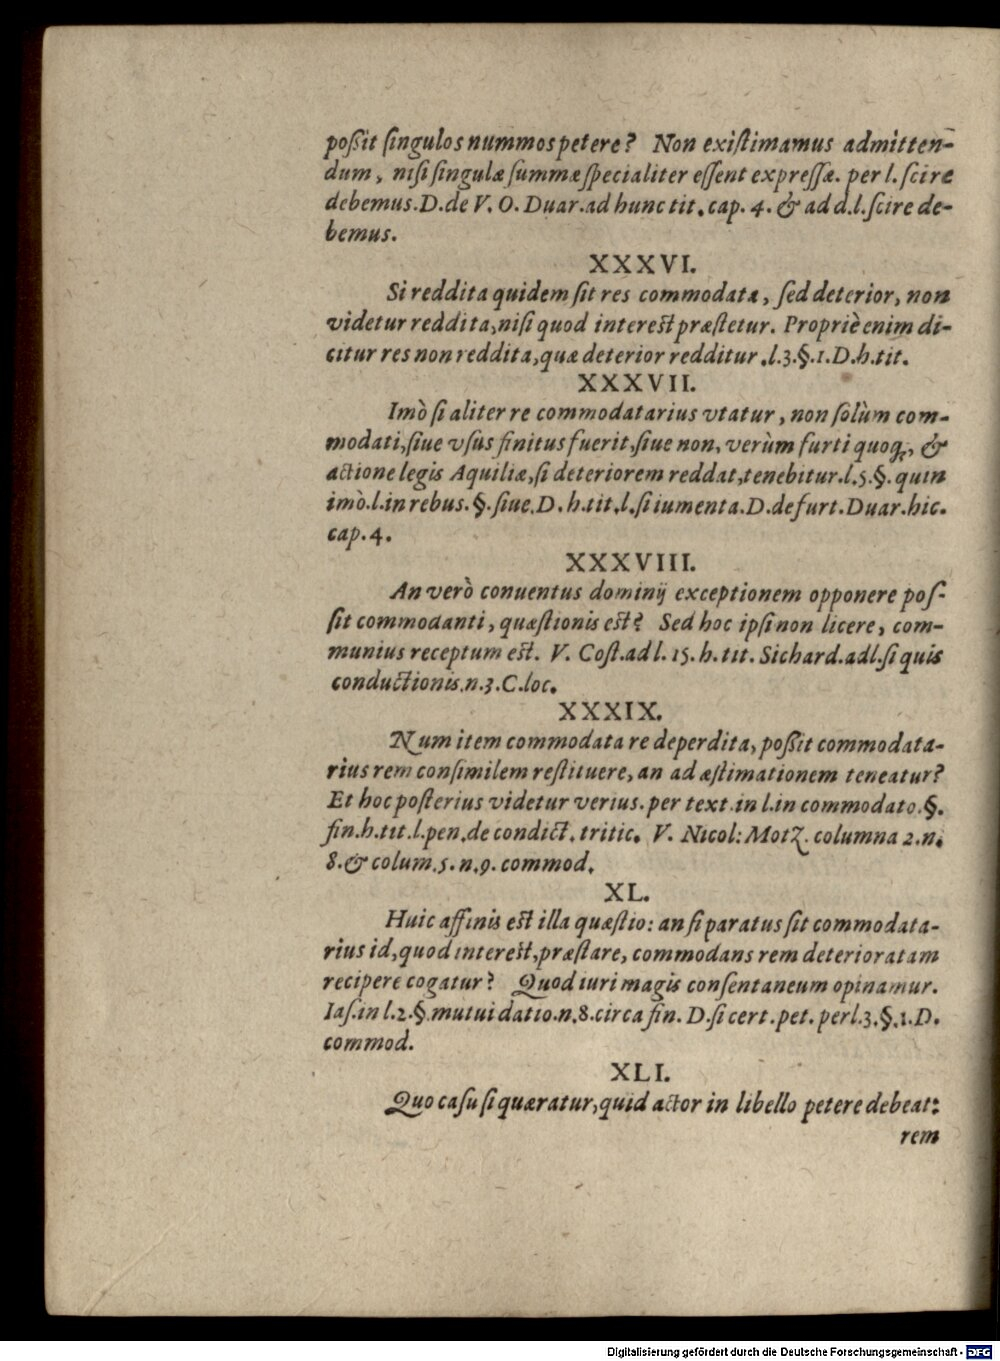 poßit ſingulos nummos petere? Non exiſtimamus admitten-
dum, niſi ſingulæ ſummæ ſpecialiter eſſent expreſſæ. per l. ſcire
debemus. D. de V. O. Duar. ad hunc tit. cap. 4. & ad d. l. ſcire de-
bemus.
XXXVI.
Si reddita quidem ſit res commodata, ſed deterior, non
videtur reddita, niſi quod intereſt præſtetur. Propriè enim di-
citur res non reddita, quæ deterior redditur. l. 3. §. 1. D. h. tit.
XXXVII.
Imò ſi aliter re commodatarius vtatur, non ſolùm com-
modati, ſiue vſus finitus fuerit, ſiue non, verùm furti quoq;, &
actione legis Aquiliæ, ſi deteriorem reddat, tenebitur. l. 5. §. quin
imò. l. in rebus. §. ſiue. D. h. tit. l. ſi iumenta. D. de furt. Duar. hic.
cap. 4.
XXXVIII.
An verò conuentus dominij exceptionem opponere poſ-
ſit commodanti, quæſtionis eſt? Sed hoc ipſi non licere, com-
munius receptum eſt. V. Coſt. ad l. 15. h. tit. Sichard. ad l. ſi quis
conductionis. n. 3. C. loc.
XXXIX.
Num item commodata re deperdita, poßit commodata-
rius rem conſimilem reſtituere, an ad æſtimationem teneatur?
Et hoc poſterius videtur verius. per text. in l. in commodato. §.
fin. h. tit. l. pen. de condict. tritic. V. Nicol: Motz. columna 2. n.
8. & colum. 5. n. 9. commod.
XL.
Huic affinis eſt illa quæſtio: an ſi paratus ſit commodata-
rius id, quod intereſt, præſtare, commodans rem deterioratam
recipere cogatur? Quod iuri magis conſentaneum opinamur.
Iaſ. in l. 2. §. mutui datio. n. 8. circa fin. D. ſi cert. pet. per l. 3. §. 1. D.
commod.
XLI.
Quo caſu ſi quæratur, quid actor in libello petere debeat:
rem
Digitalisierung gefördert durch die Deutsche Forschungsgemeinschaft - DFG